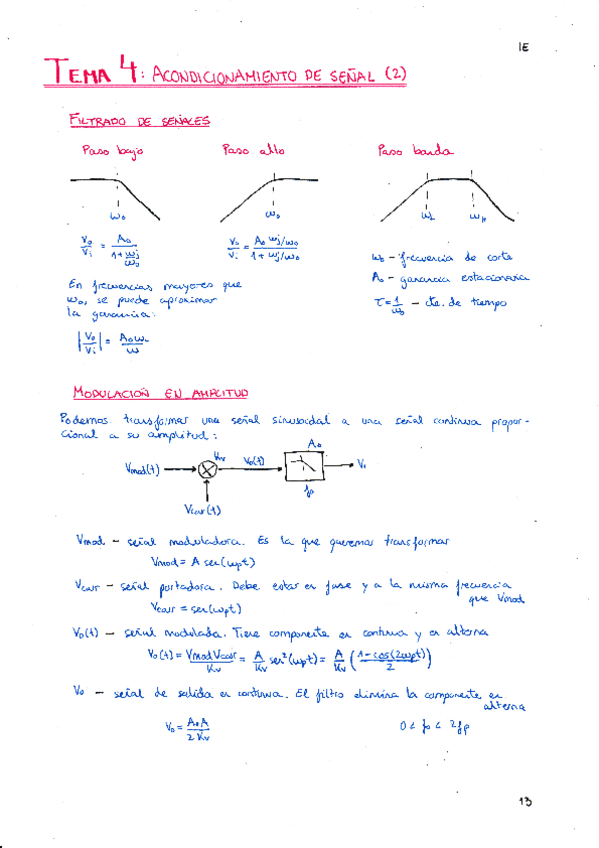 IE
TEMA 4: ACONDICIONAMIENTO DE SEÑAL (2)
FILTRADO DE SEÑALES
Paso bajo Paso alto Paso banda
ω₀ ω₀ ω_L ω_H
V₀/Vi = A₀/(1+ωj/ω₀) V₀/Vi = A₀ ωj/ω₀/(1+ωj/ω₀)
ω₀ – frecuencia de corte
A₀ – ganancia estacionaria
τ = 1/ω₀ – cte. de tiempo
En frecuencias mayores que
ω₀, se puede aproximar
la ganancia:
|V₀/Vi| = A₀ω₀/ω
MODULACIÓN EN AMPLITUD
Podemos transformar una señal sinusoidal a una señal continua propor-
cional a su amplitud:
Vmod(t) Kv V₀(t) A₀ V₀
f₀
Vcar(t)
Vmod – señal moduladora. Es la que queremos transformar
Vmod = A sen(ωpt)
Vcar – señal portadora. Debe estar en fase y a la misma frecuencia
que Vmod
Vcar = sen(ωpt)
V₀(t) – señal modulada. Tiene componente en continua y en alterna
V₀(t) = Vmod Vcar/Kv = A/Kv sen²(ωpt) = A/Kv ((1-cos(2ωpt))/2)
V₀ – señal de salida en continua. El filtro elimina la componente en
alterna
V₀ = A₀A/2Kv 0 < f₀ < 2fp
13